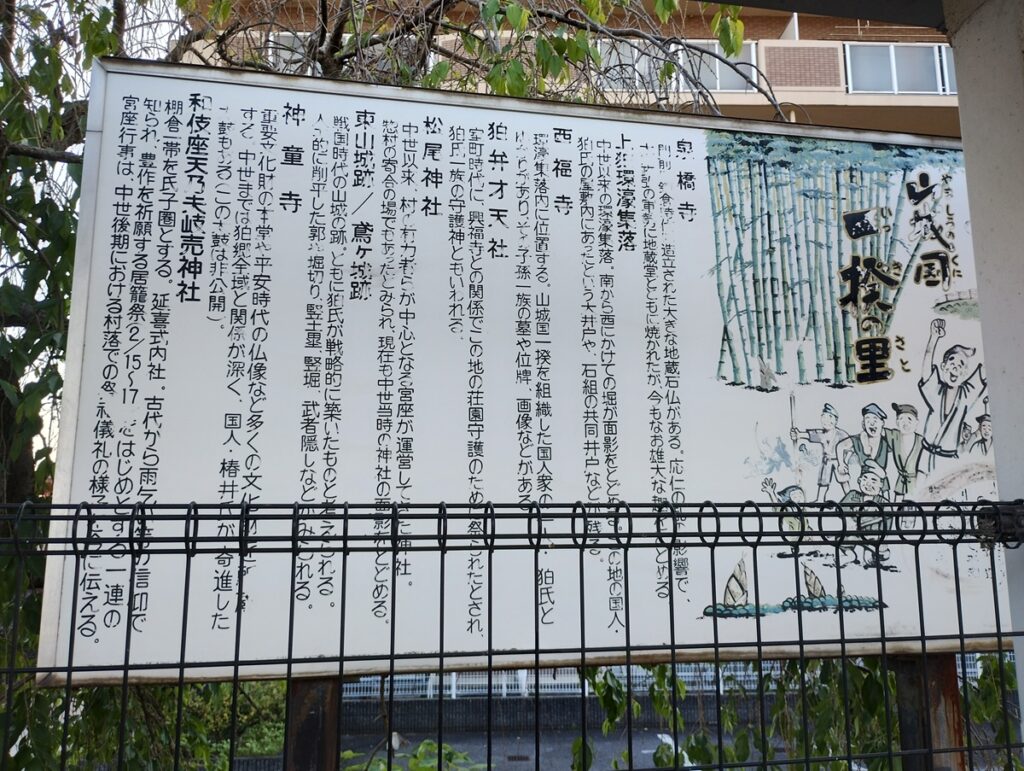 山城国
やましろのくに
一揆の里
いっきのさと
泉橋寺
造立された大きな地蔵石仏がある。応仁の
影響で、
地蔵堂とともに焼かれたが、今もなお雄大な
上狛環濠集落
中世以来の環濠集落。南から西にかけての堀が面影をとどめる。この地の国人・
狛氏の屋敷内にあったという大井戸や、石組の共同井戸などが残る。
西福寺
環濠集落内に位置する。山城国一揆を組織した国人衆の一人・狛氏と
ゆかりがあり、その子孫一族の墓や位牌、画像などがある。
狛弁才天社
室町時代に、興福寺との関係でこの地の荘園守護のため、祭られたとされ、
狛氏一族の守護神ともいわれる。
松尾神社
中世以来、村の有力者らが中心となる宮座が運営してきた神社。
惣村の寄合の場であったとみられ、現在も中世当時の神社の面影をとどめる。
東山城跡/鳶ヶ城跡
戦国時代の山城の跡。ともに狛氏が戦略的に築いたものと考えられる。
人為的に削平した郭、堀切り、竪土塁、竪堀、武者隠しなどがみられる。
神童寺
重要文化財の本堂や平安時代の仏像など多くの文化財を
する。中世までは狛郷全域と関係が深く、国人・椿井氏が寄進した
太鼓もある(この太鼓は非公開)。
和伎座天乃夫岐売神社
棚倉一帯を氏子圏とする。延喜式内社。古代から雨乞い等の
で
知られ、豊作を祈願する居籠祭(2/15~17)をはじめとする一連の
宮座行事は、中世後期における村落での祭祀儀礼の様子を
に伝える。